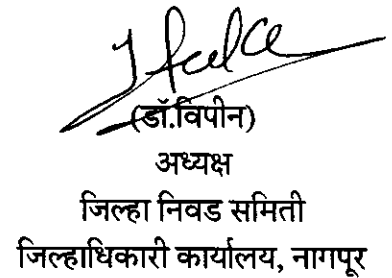 (डॉ.विपीन)
अध्यक्ष
जिल्हा निवड समिती
जिल्हाधिकारी कार्यालय, नागपूर